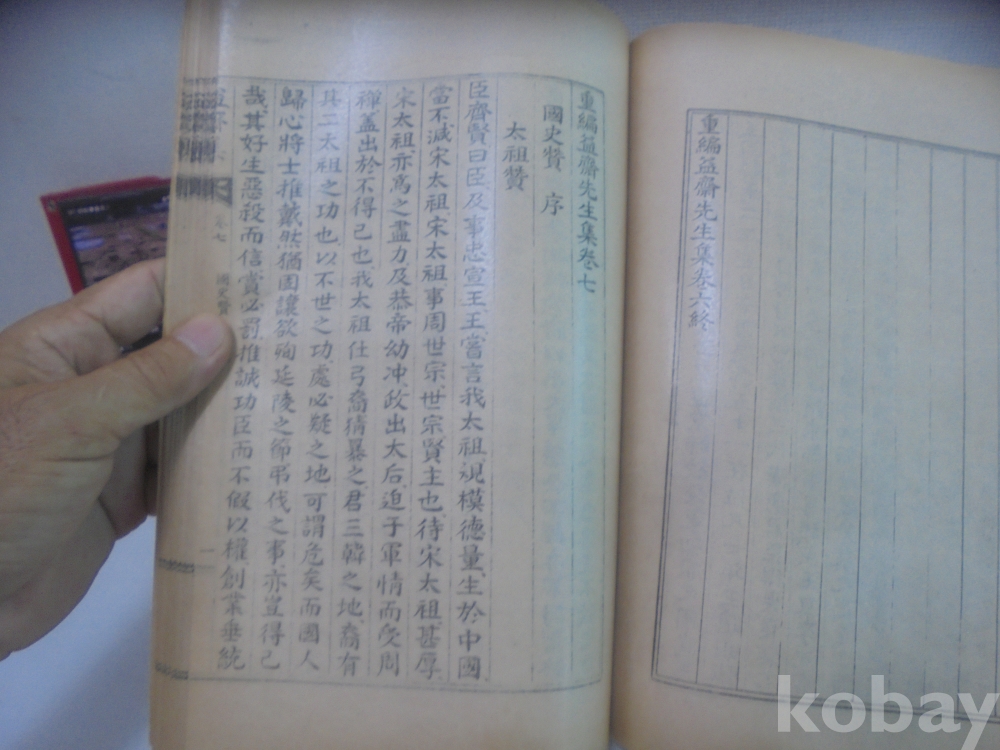 重編益齋先生集卷六終
重編益齋先生集卷七
國史贊 序
太祖贊
臣齊賢曰臣及事忠宣王王嘗言我太祖規模德量生於中國
當不減宋太祖宋太祖事周世宗世宗賢主也待宋太祖甚厚
宋太祖亦爲之盡力及恭帝幼冲政出太后迫于軍情而受周
禪蓋出於不得已也我太祖仕弓裔猜暴之君三韓之地裔有
其二太祖之功也以不世之功處必疑之地可謂危矣而國人
歸心將士推戴然猶固讓欲徇延陵之節弔伐之事亦豈得已
哉其好生惡殺而信賞必罰推誠功臣而不假以權創業垂統
卷七 國史贊 一
kobay